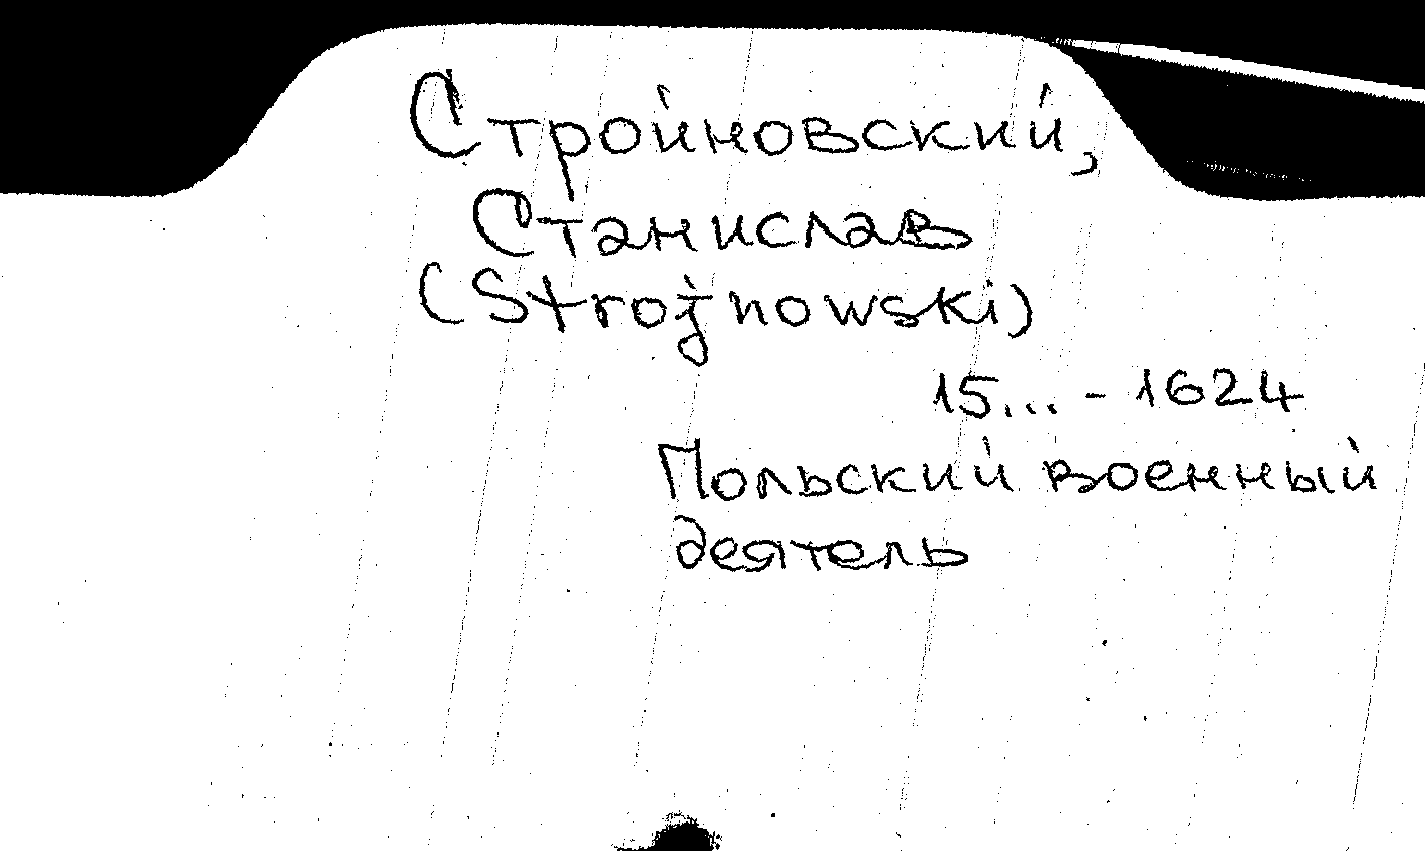 Стройновский,
Станислав
(Strojnowski)
15... - 1624
Польский военный
деятель